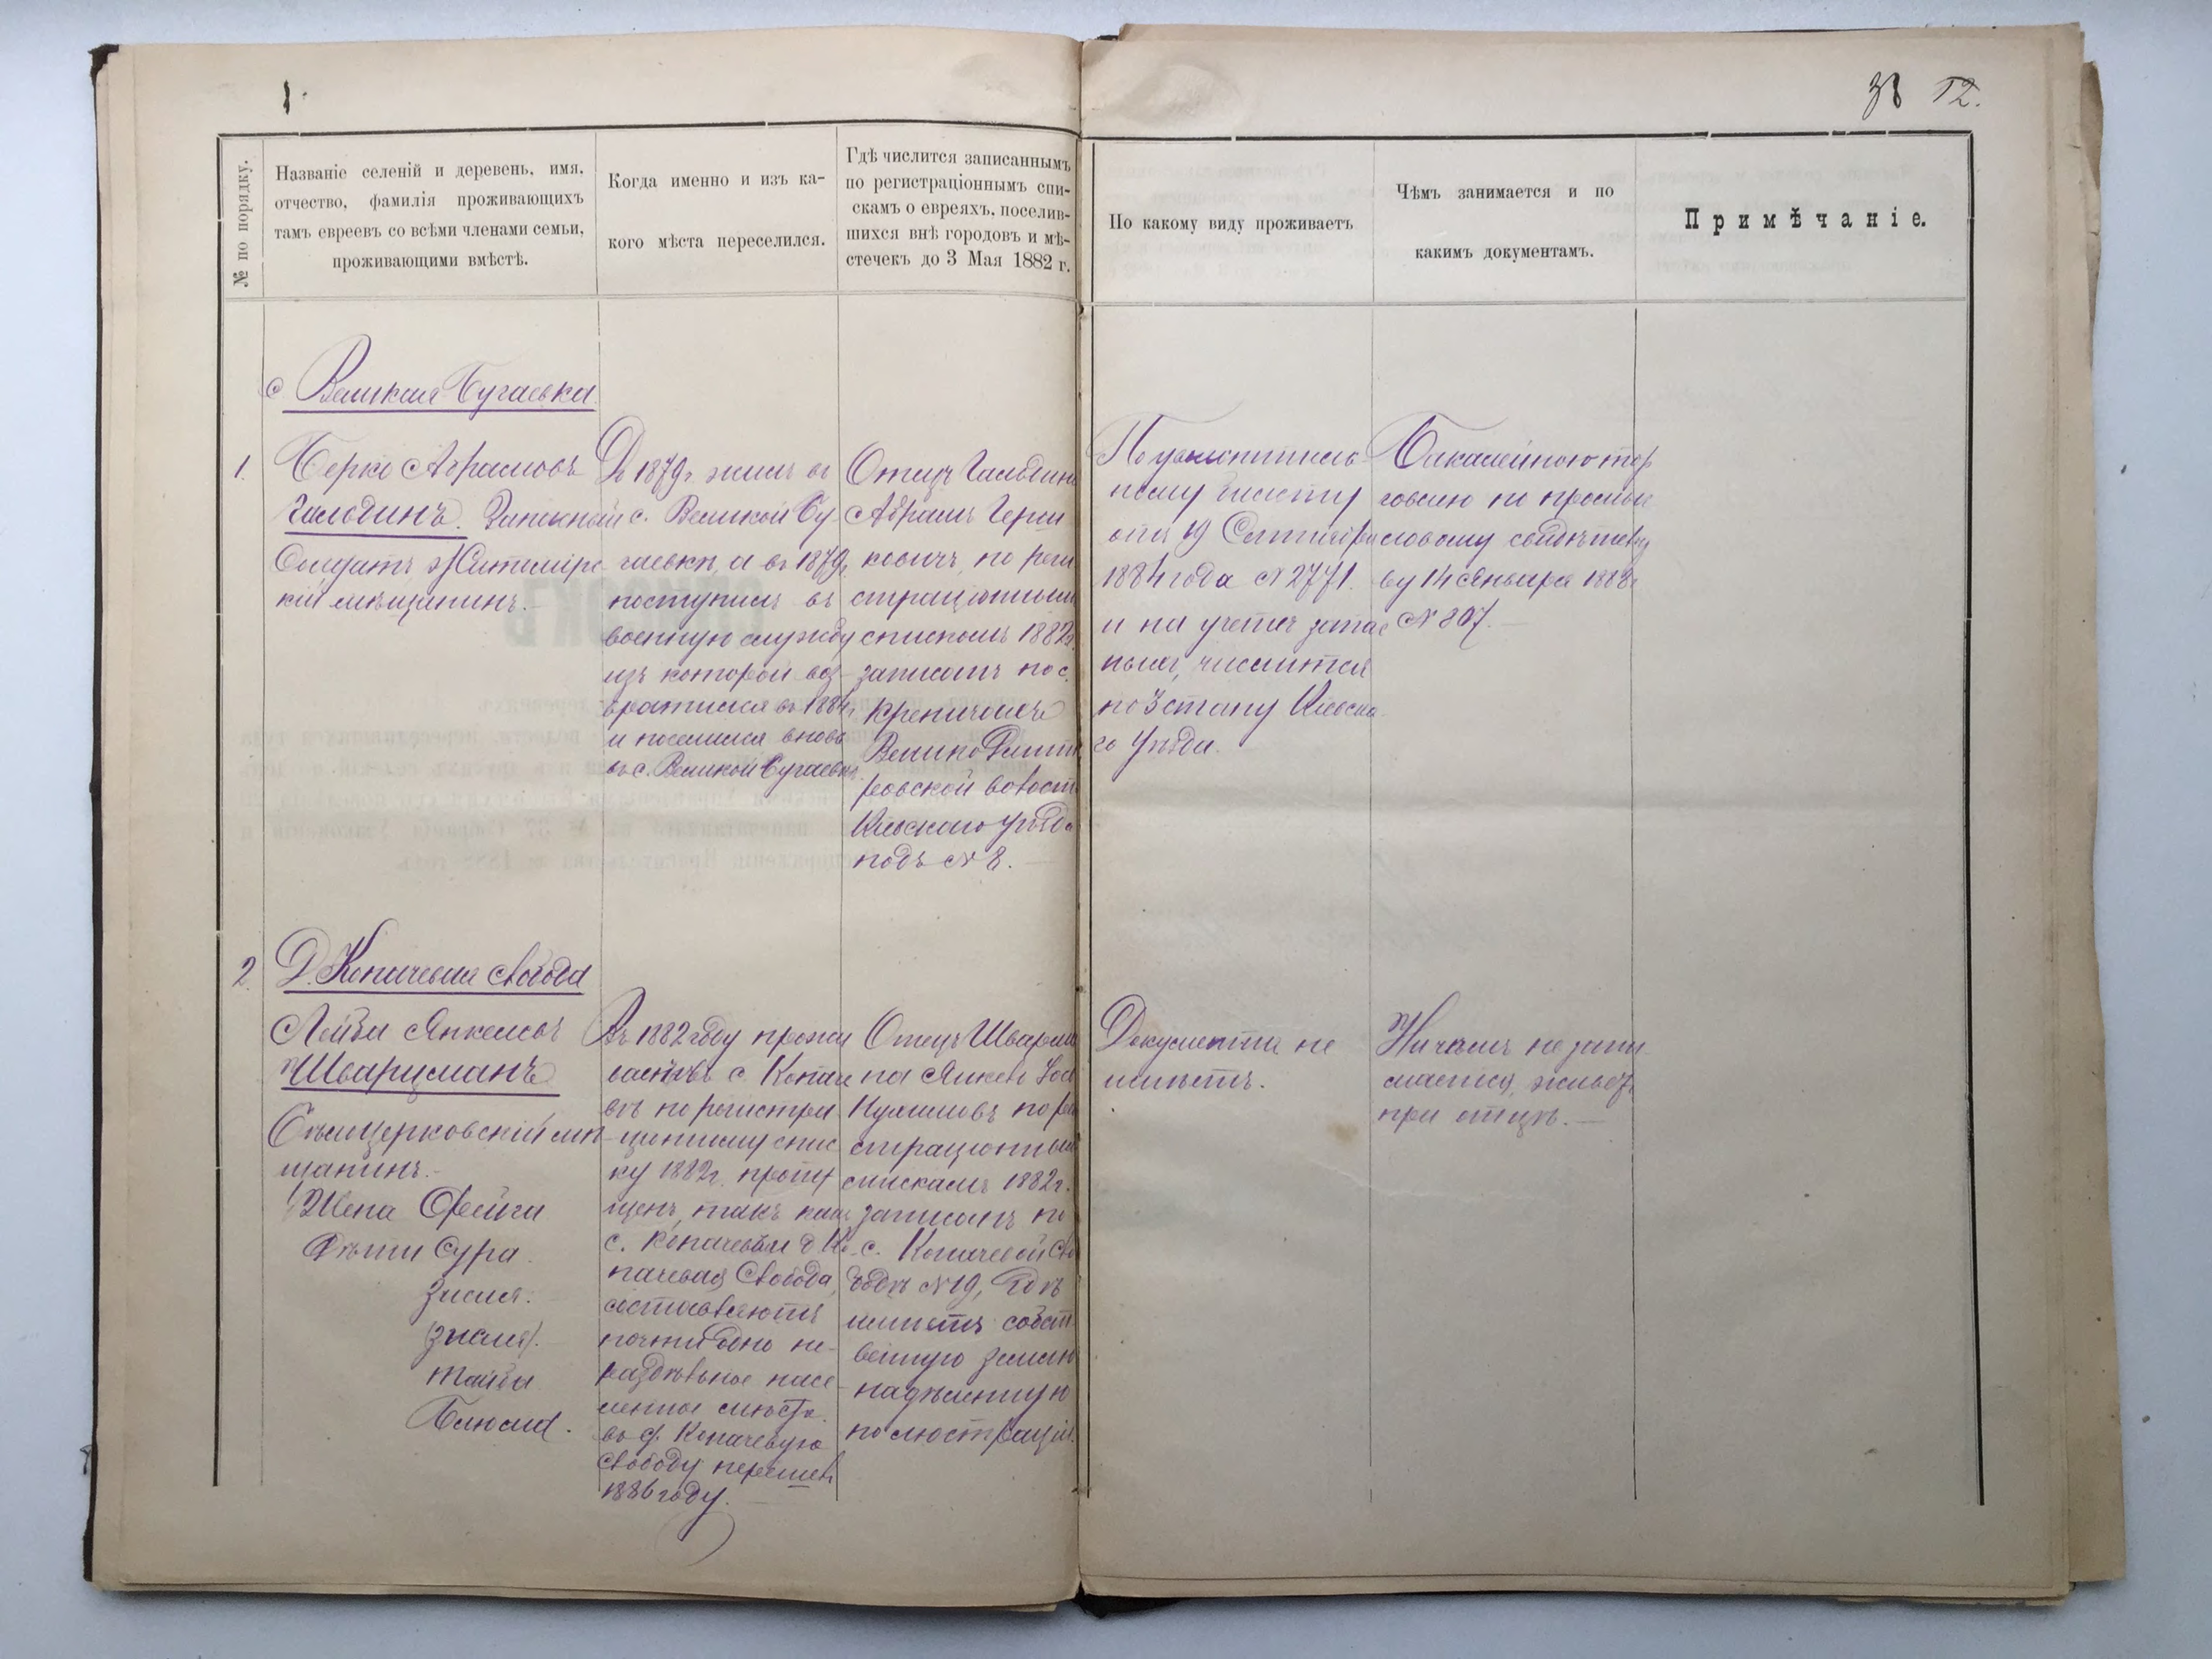 1.
12.
№ по порядку.
Названіе селеній и деревень, имя,
отчество, фамилія проживающихъ
тамъ евреевъ со всѣми членами семьи,
проживающими вмѣстѣ.
Когда именно и изъ ка-
кого мѣста переселился.
Гдѣ числится записаннымъ
по регистраціоннымъ спи-
скамъ о евреяхъ, поселив-
шихся внѣ городовъ и мѣ-
стечекъ до 3 Мая 1882 г.
По какому виду проживаетъ
Чѣмъ занимается и по
какимъ документамъ.
Примѣчаніе.
с Великая Бугаевка
1.
Берко Абрамовъ
Гальдинъ. Запасный
Солдатъ Житомірс
кій мѣщанинъ.
До 1879г. жилъ въ
с. Великой Бу-
гаевкѣ, а въ 1879г.
поступилъ въ
военную службу
изъ которой воз-
вратился въ 1884г.
и поселился вновь
въ с. Великой Бугаевкѣ.
Отецъ Гальдина
Абрамъ Герш
ковичъ, по реги
страціоннымъ
спискамъ 1882г.
записанъ по с.
Креничамъ
Велико Дмит
ровской волости
Кіевскаго уѣзда
подъ № 8.
По увольнитель
ному билету
отъ 19 Сентября
1884 года № 2771.
и на учетѣ запас
ныхъ, числится
по 3 стану Кіевска
го уѣзда.
Бакалейною тор
говлею по промы
словому свидѣтельст
ву 14 Января 1888г
№ 807.
2.
Д. Копачевая Свобода
Лейба Янкелевъ
Шварцманъ
Бѣлоцерковскій мѣ
щанинъ.
Жена Фейга
Дѣти Сура.
Зисля.
(Зисля).
Тайба
Блюма.
Въ 1882 году прожи
валъ въ с. Копаче
вѣ по регистра
ціонному спис
ку 1882г. пропу
щенъ, такъ какъ
с. Копачевъ и д. Ко-
пачевая Свобода,
составляютъ
почти одно не-
раздѣльное насе
ленное мѣсто.
въ д. Копачевую
Свободу перешелъ
1886 году.
Отецъ Шварцма
на Янкель
по ре
страціоннымъ
спискамъ 1882г.
записанъ по
с. Копачевой Сво
бодѣ № 19, гдѣ
имѣетъ собст
венную землю
надѣленную
по люстраціи.
Документа не
имѣетъ.
Ничѣмъ не зани-
мается, живетъ
при отцѣ.